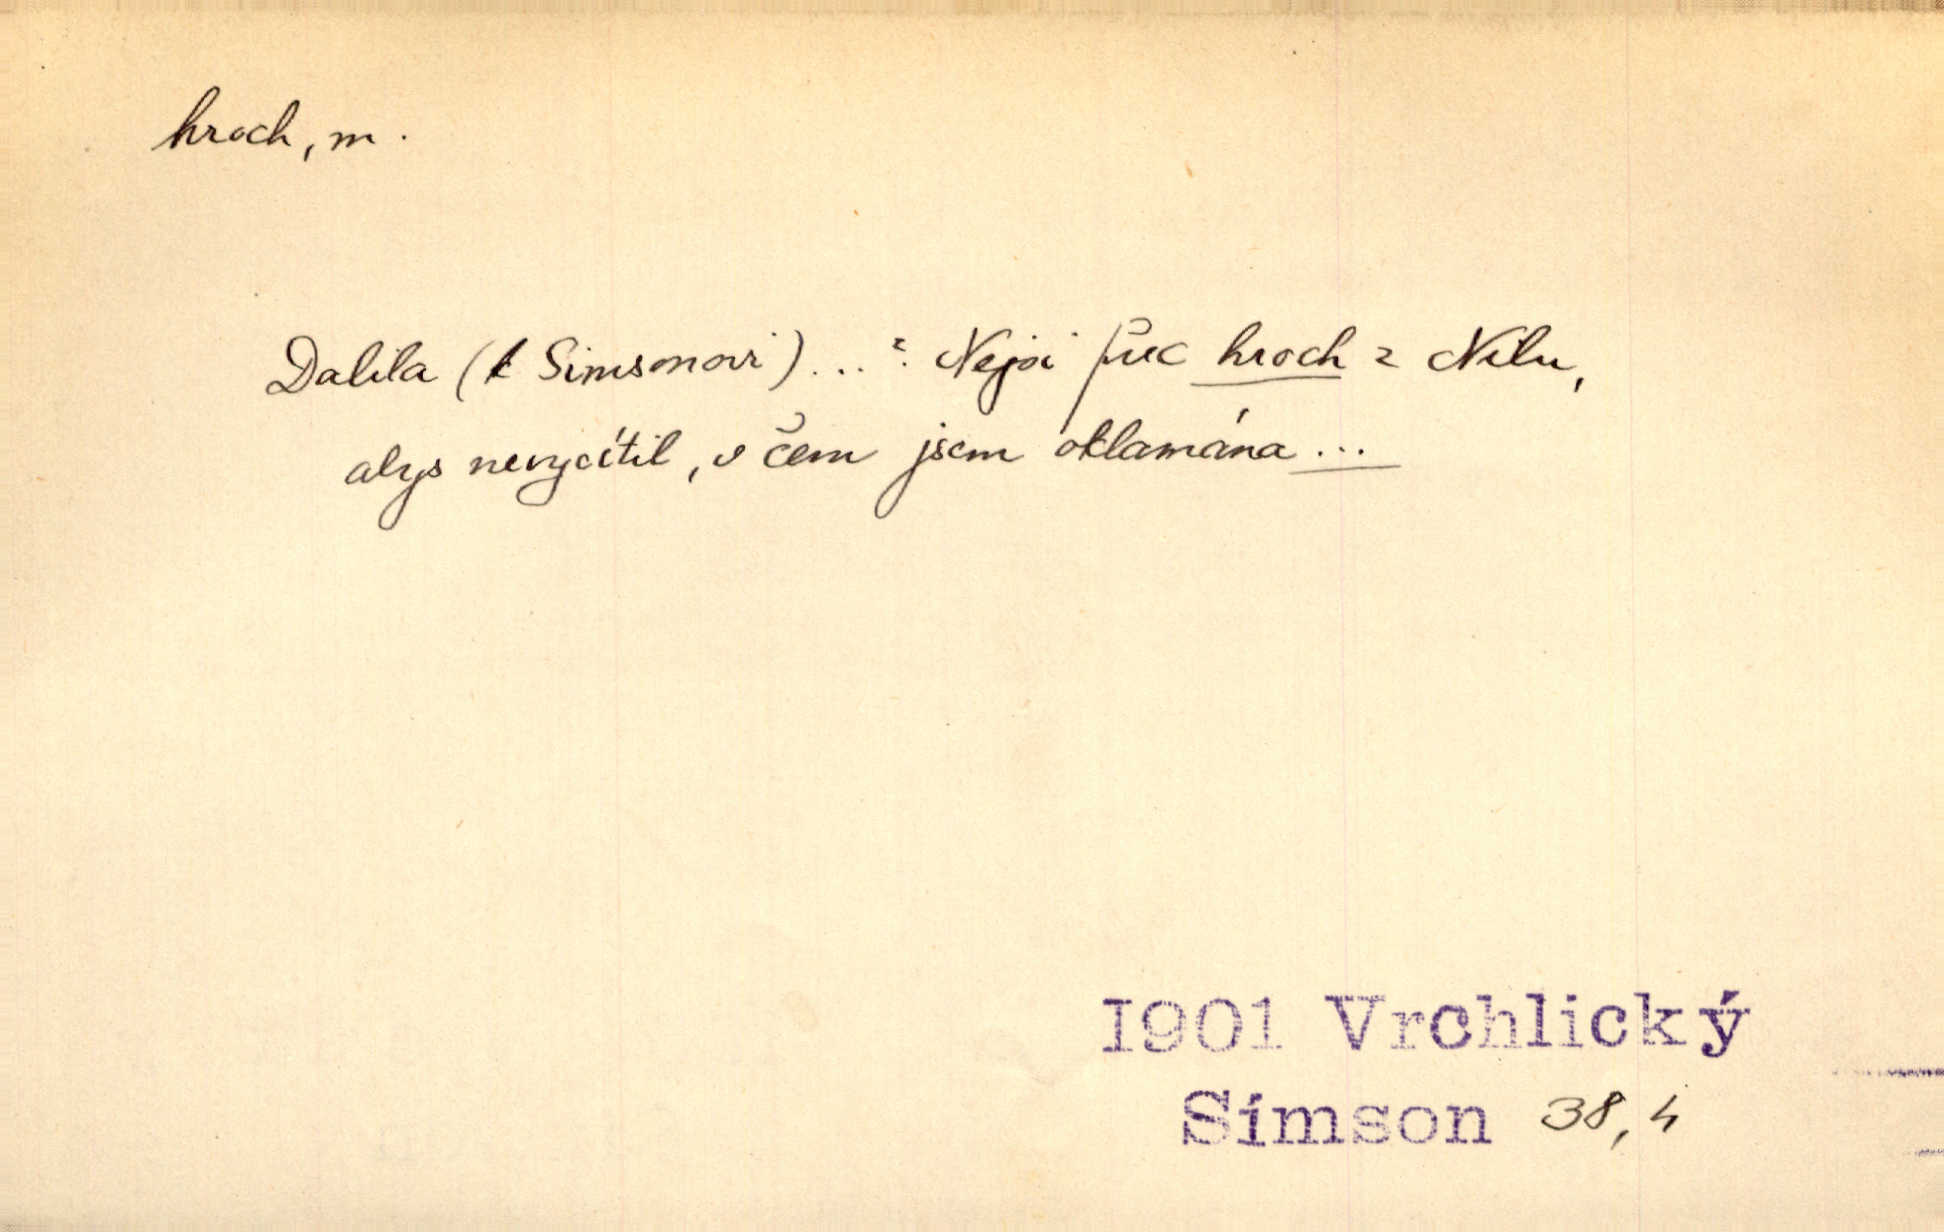 hroch, m.
Dalila (k Simsonovi)...: Nejsi přec hroch z Nilu,
abys nevycítil, v čem jsem oklamána...
1901 Vrchlický
Simson 38, 4